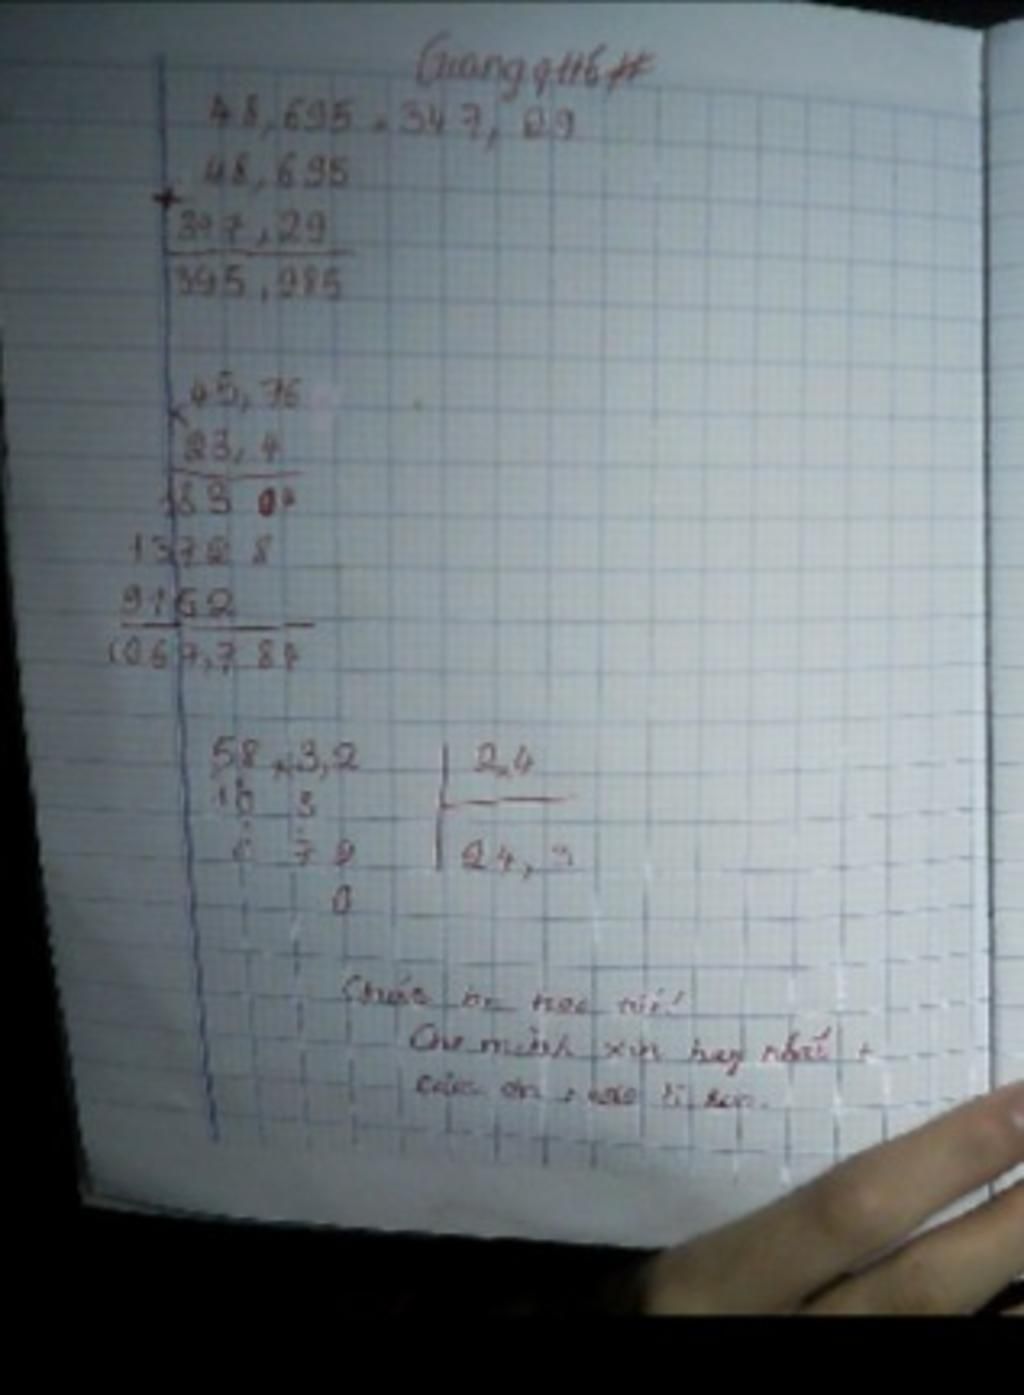 48,695 + 347,29
48,695
+
347,29
395,985
45,76
×
23,4
183 04
1372 8
9152
1067,784
58,3,2 2,4
10 3
72 24,3
0
Chúc bn học tốt!
Cho mình xin hay nhất +
cảm ơn + vote 5 sao.